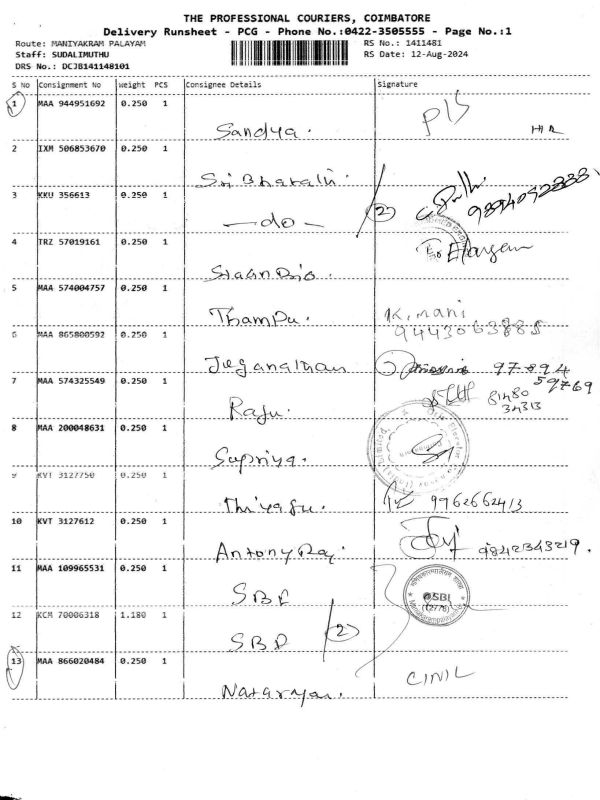 THE PROFESSIONAL COURIERS, COIMBATORE
Delivery Runsheet - PCG - Phone No.:0422-3505555 - Page No.:1
Route: MANIYAKRAM PALAYAM RS No.: 1411481
Staff: SUDALIMUTHU RS Date: 12-Aug-2024
DRS No.: DCJB141148101
S No Consignment No Weight PCS Consignee Details Signature
1 MAA 944951692 0.250 1 Sandya. P/S
2 IXM 506853670 0.250 1 Sri Bharathi.
3 KKU 356613 0.250 1 —do— 2 9894092888
4 TRZ 57019161 0.250 1
5 MAA 574004757 0.250 1 Thampu. K. mani
9443063885
6 MAA 865800592 0.250 1 Jeganathan 97894
59769
7 MAA 574325549 0.250 1 Raju. 81480
34313
8 MAA 200048631 0.250 1 Supriya.
9 KVT 3127750 0.250 1 Thiyagu. 9962662413
10 KVT 3127612 0.250 1 Antony Raj. 9842343219.
11 MAA 109965531 0.250 1 SBI SBI
12 KCM 70006318 1.180 1 SBI 2
13 MAA 866020484 0.250 1 Natarajan. C/NIL